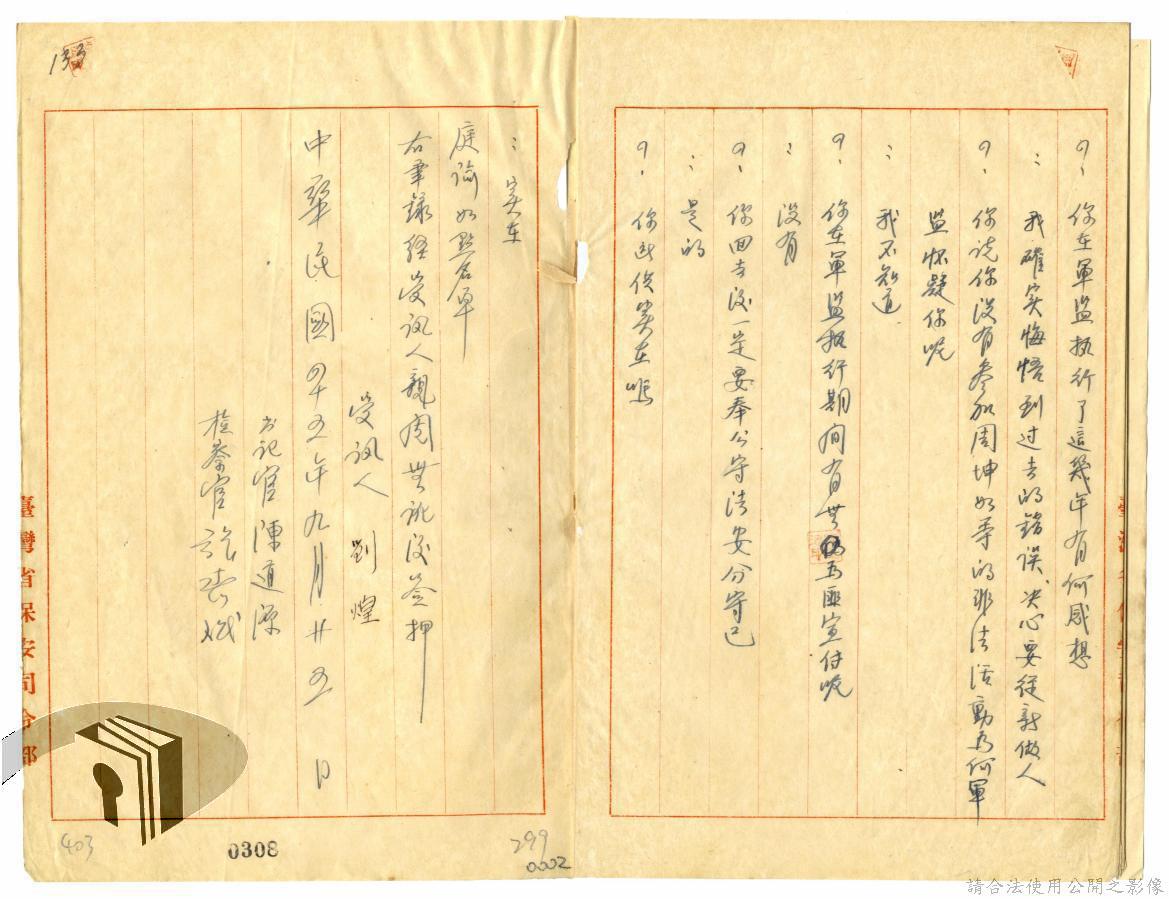 問、你在軍監执行了這幾年有何感想
：我確实悔悟到过去的錯误、决心要從新做人
問、你说你没有参加周坤如等的非法活動為何軍
監怀疑你呢
：我不知道
問、你在軍監执行期间有無為匪宣付呢
：没有
問、你回去後一定要奉公守法安分守己
：是的
問、你所供实在嗎
：实在
庭諭如點名單
右筆錄經受訊人親閱無訛後簽押
受訊人 劉煌
书记官 陳道源
检察官
中華民國四十五年九月廿五日
臺灣省保安司令部
133
403
0308
299
0002
請合法使用公開之影像